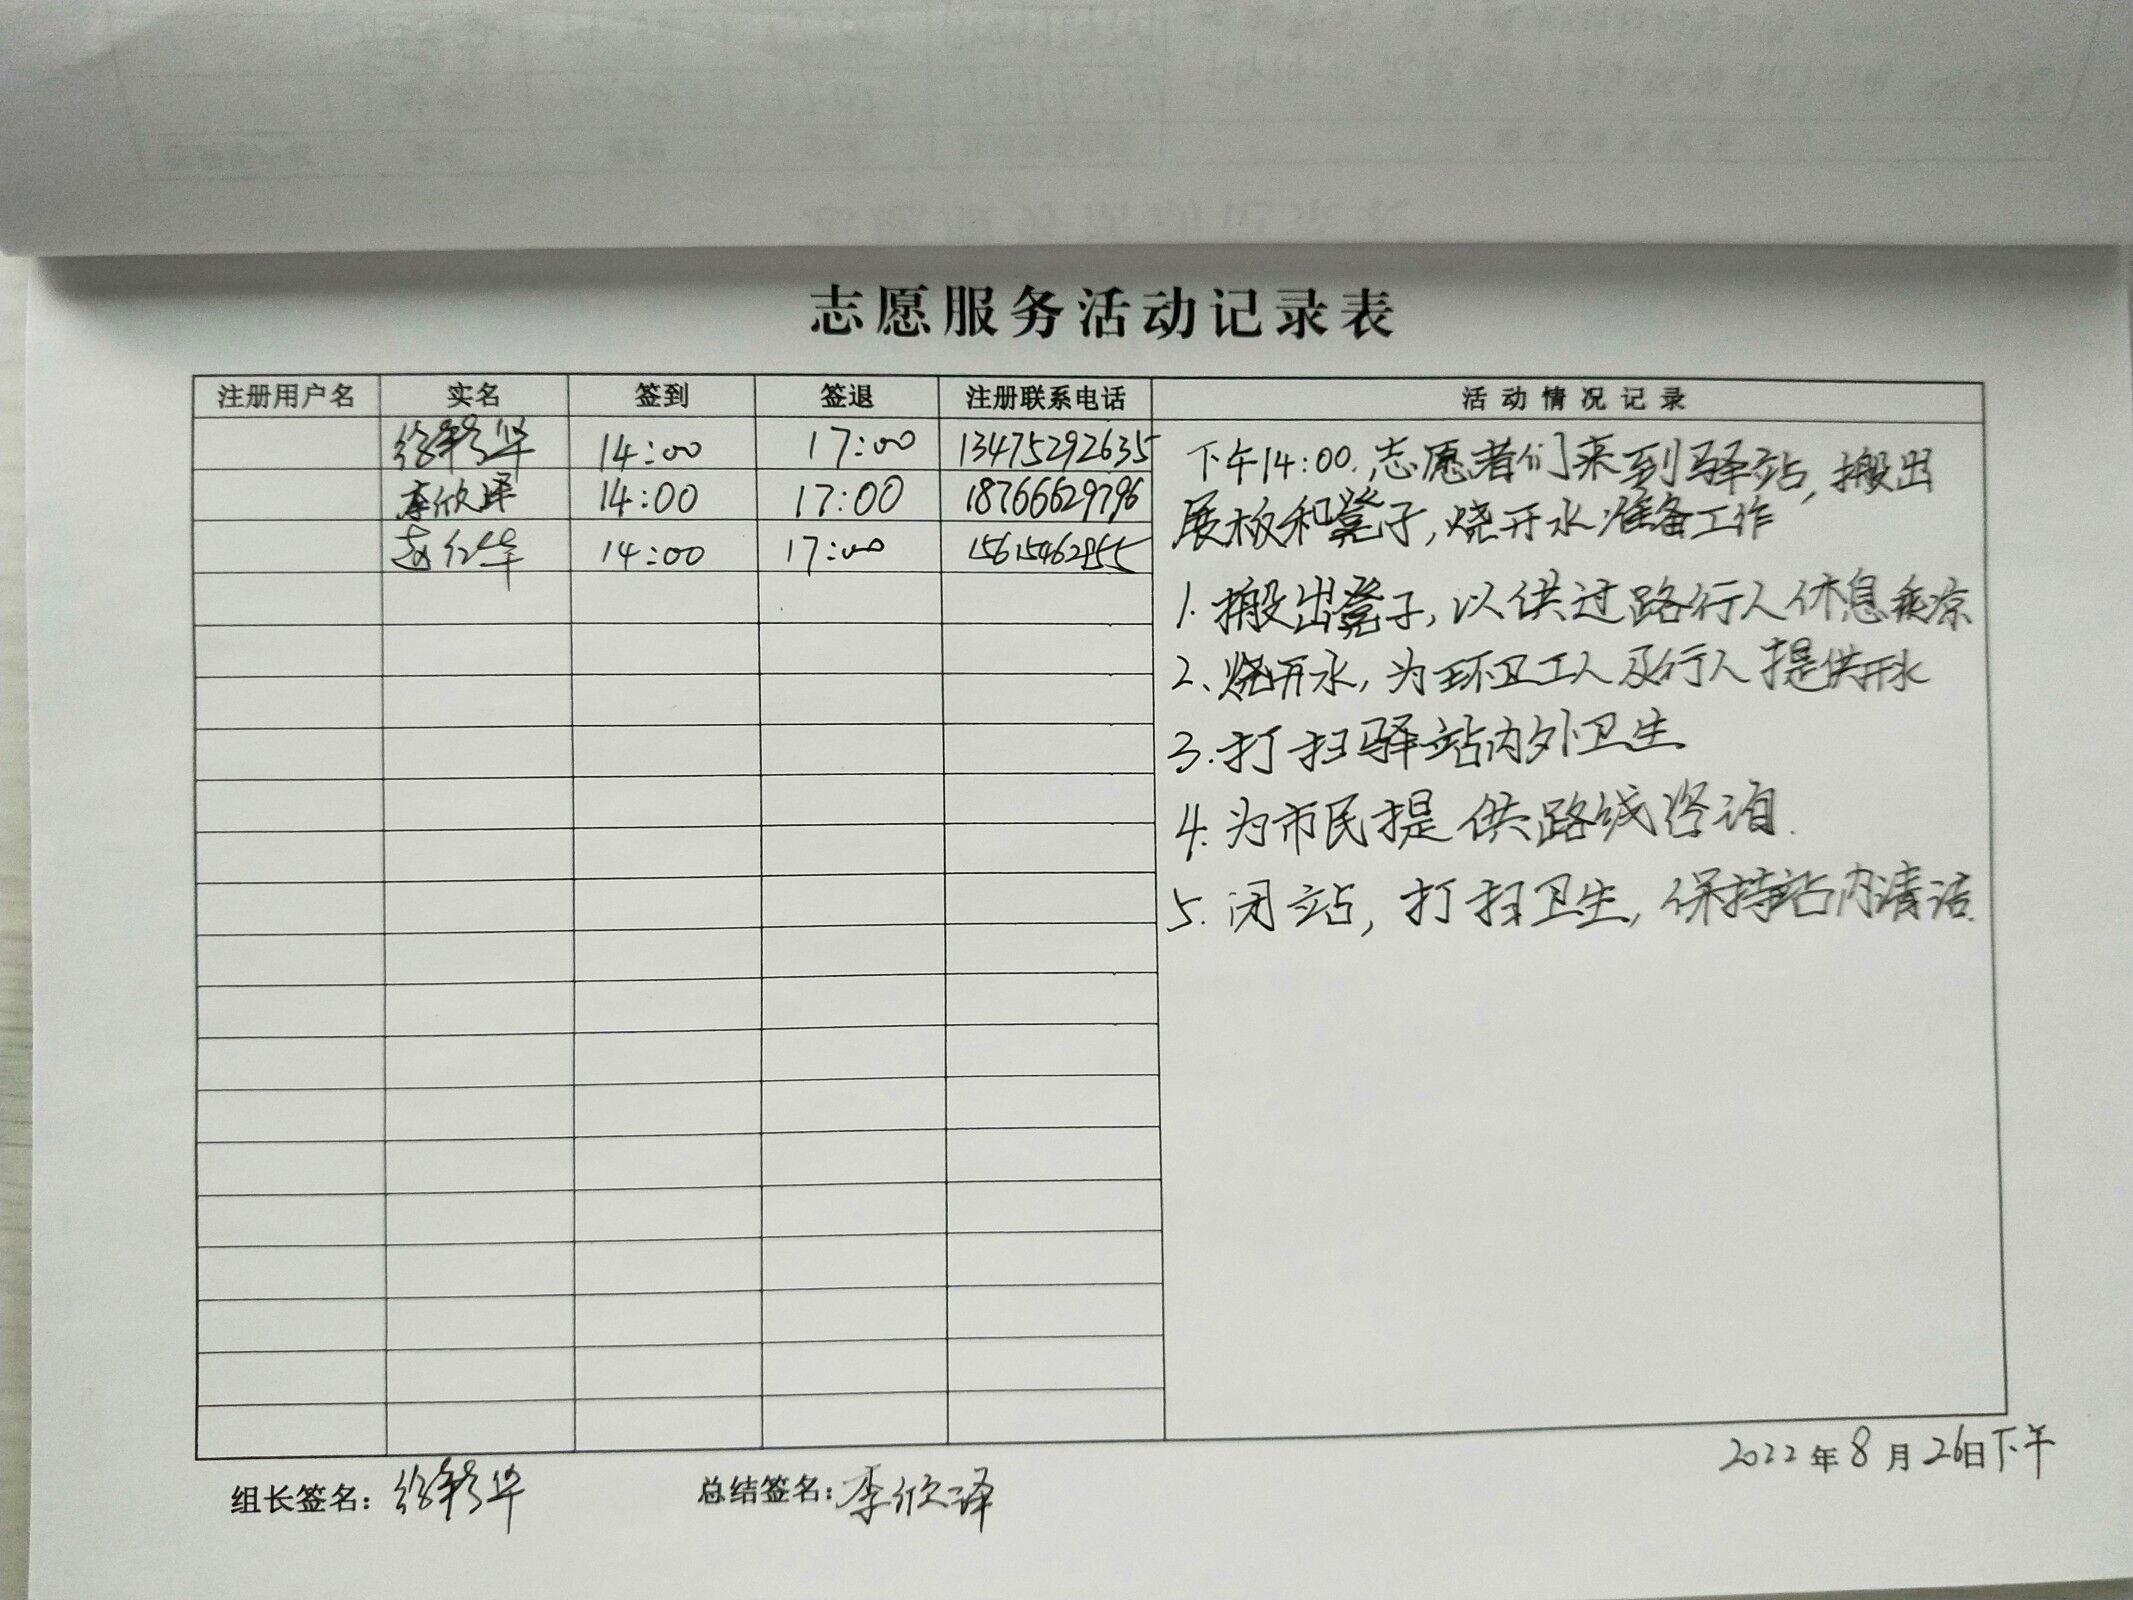 志愿服务活动记录表
注册用户名 实名 签到 签退 注册联系电话 活动情况记录
14:00 17:00 13475292635
李欣泽 14:00 17:00 18766629796
赵红华 14:00 17:00
下午14:00,志愿者们来到驿站,搬出
展板和凳子,烧开水准备工作
1.搬出凳子,以供过路行人休息乘凉
2、烧开水,为环卫工人及行人提供开水
3.打扫驿站内外卫生
4.为市民提供路线咨询.
5.闭站,打扫卫生,保持站内清洁.
2022年8月26日下午
组长签名: 总结签名:李欣泽